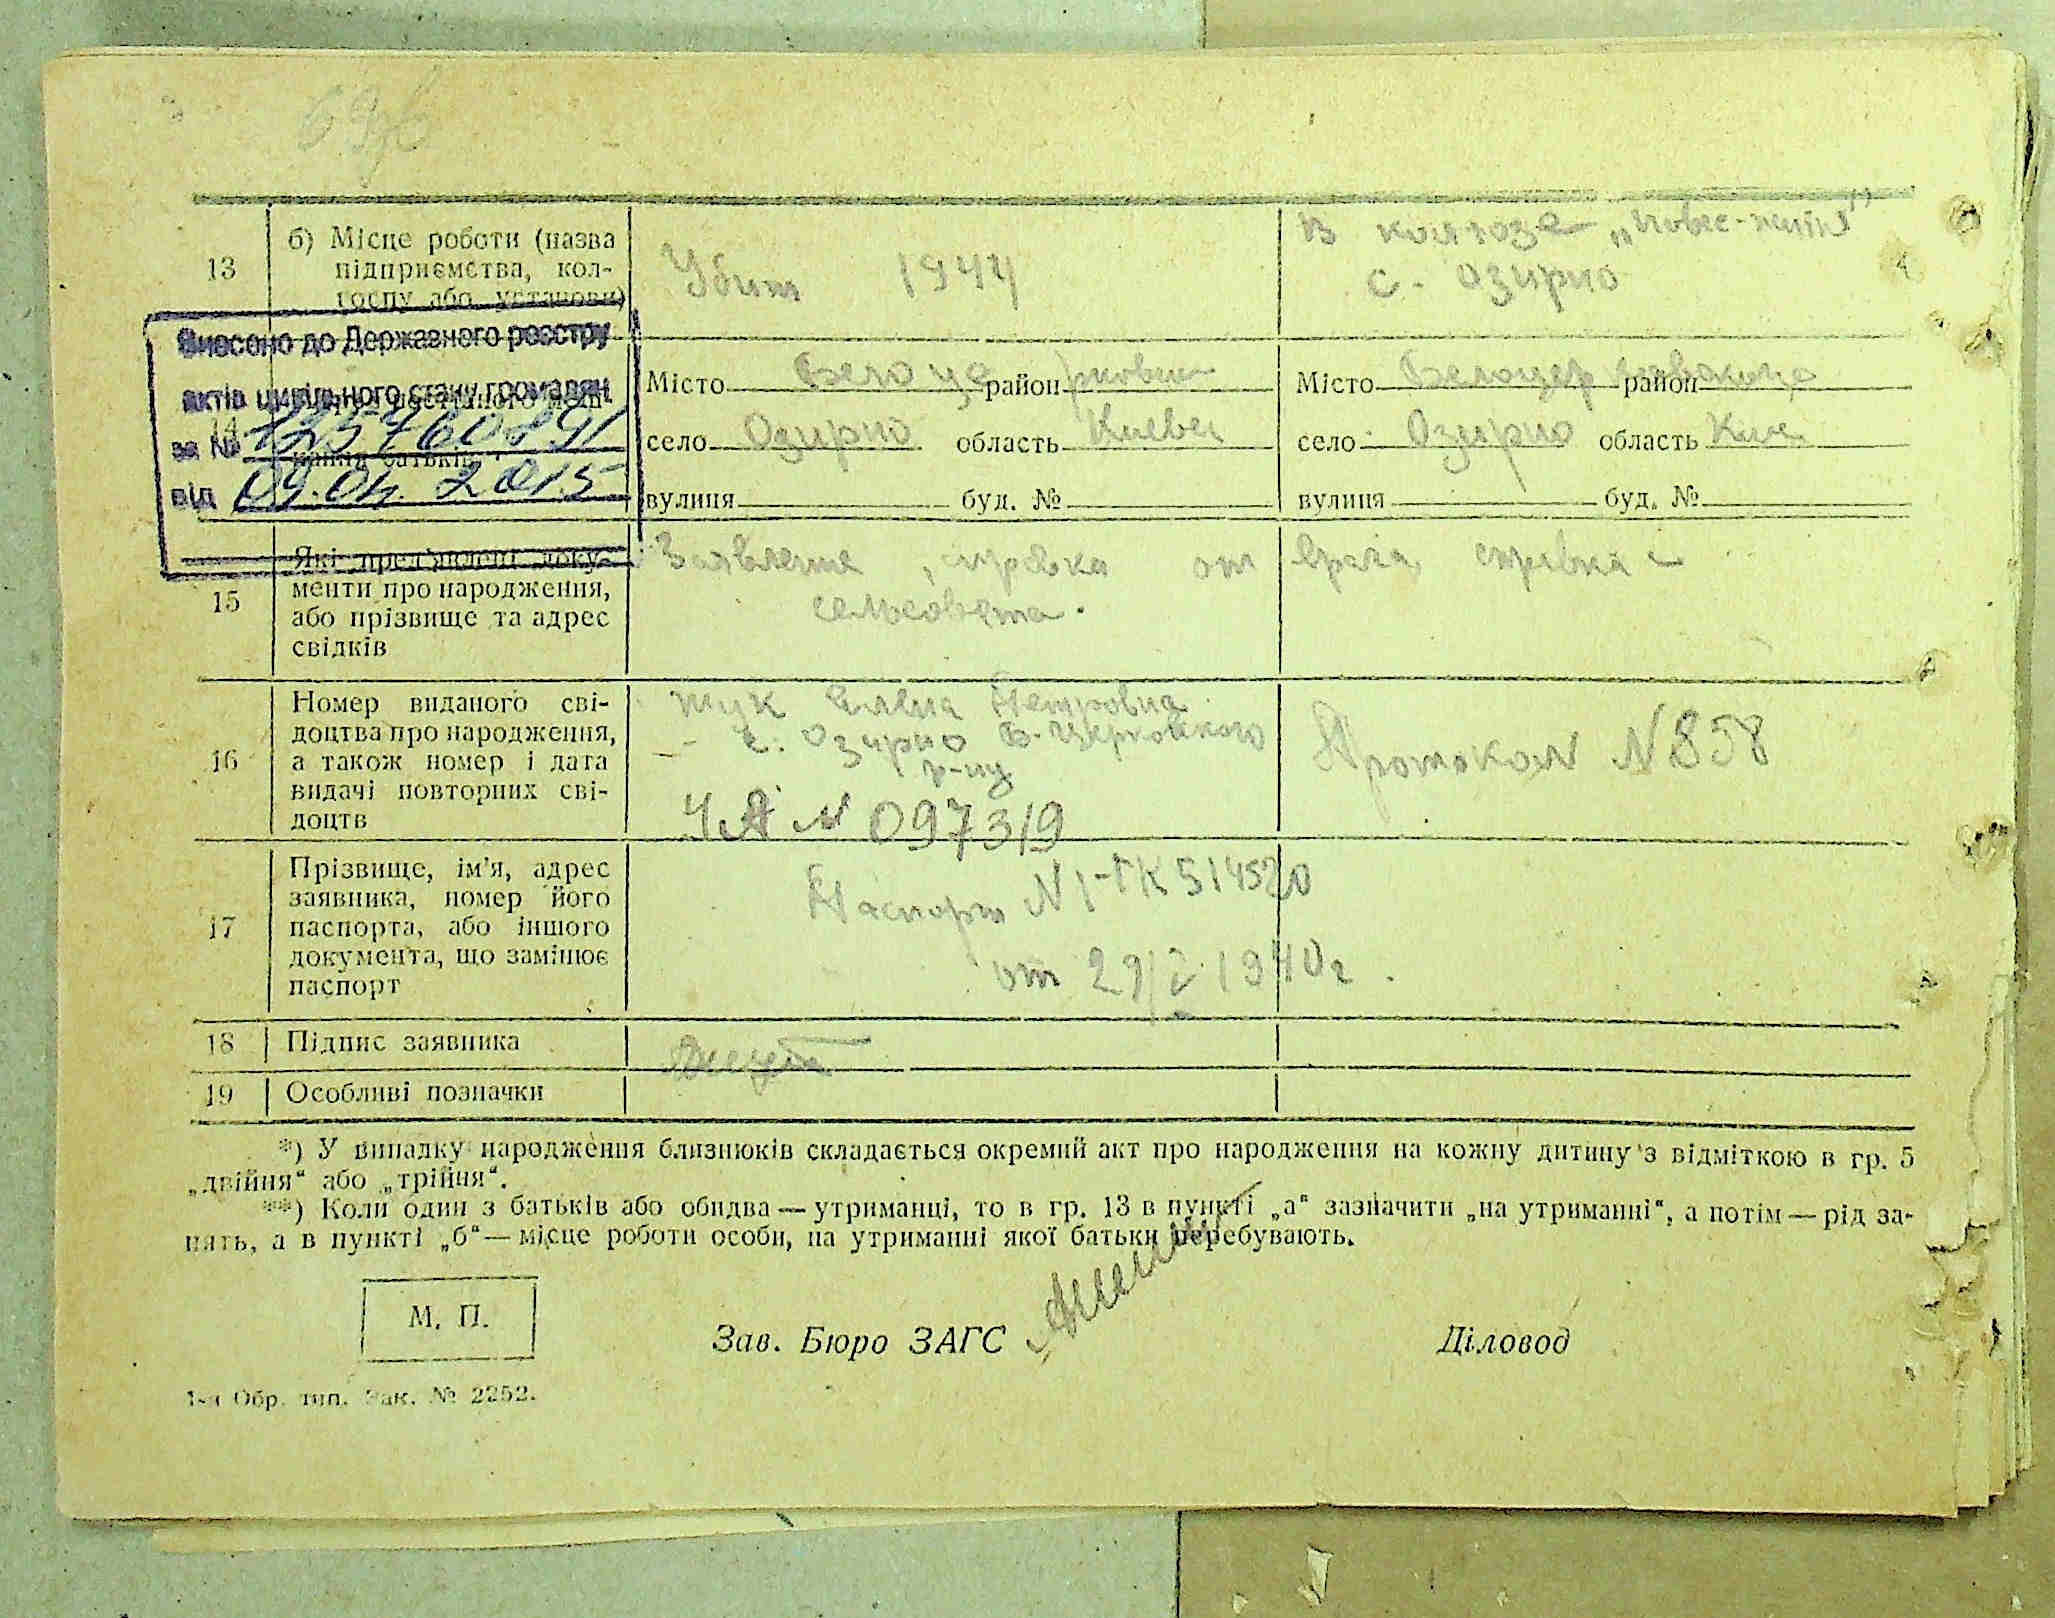 13
б) Місце роботи (назва
підприємства, кол-
госпу або установи)
Убит 1944
В колгозе
с. Озирно
Внесено до Державного реєстру
актів цивільного стану громадян
за №
від 09.04.2015
14
постійного
батьків
Місто Белоце район рковск
село Озирно область Киевск
вулиця буд. №
Місто Белоцер район
село Озирно область Киев
вулиця буд. №
15
Які пред'явлені доку-
менти про народження,
або прізвище та адрес
свідків
Заявление, справка от
сельсовета.
врача справка
16
Номер виданого сві-
доцтва про народження,
а також номер і дата
видачі повторних сві-
доцтв
Жук Елена Петровна
с. Озирно Б-Церковского
р-ну
ЧА № 097319
Протокол № 858
17
Прізвище, ім'я, адрес
заявника, номер його
паспорта, або іншого
документа, що замінює
паспорт
Паспорт № 1-ГК 514520
от 1940 г.
18
Підпис заявника
19
Особливі позначки
*) У випадку народження близнюків складається окремий акт про народження на кожну дитину з відміткою в гр. 5
„двійня“ або „трійня“.
**) Коли один з батьків або обидва — утриманці, то в гр. 13 в пункті „а“ зазначити „на утриманні“, а потім — рід за-
нять, а в пункті „б“ — місце роботи особи, на утриманні якої батьки перебувають.
М. П.
Зав. Бюро ЗАГС
Діловод
1-а Обр. тип. Зак. № 2252.